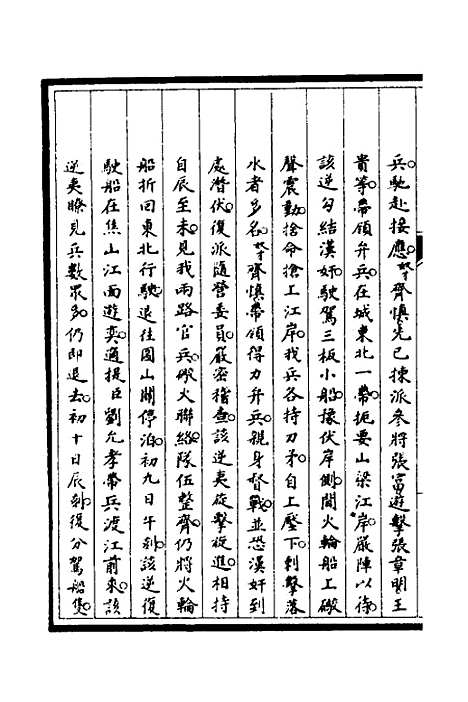 兵馳赴接應。奴才齊慎先已揀派參將張富遊擊張章明王
貴等。帶領弁兵在城東北一帶。扼要山梁江岸。嚴陣以待。
該逆勾結漢奸。駛駕三板小船。豫伏岸側。聞火輪船上礮
聲震動。捨命搶上江岸。我兵各持刀矛。自上壓下。刺擊落
水者多名。奴才齊慎帶領得力弁兵。親身督戰。並恐漢奸到
處潛伏。復派隨營委員。嚴密稽查。該逆夷旋擊旋進。相持
自辰至未。見我兩路官兵。礮火聯絡。隊伍整齊。仍將火輪
船折回東北行駛。退往圌山關停泊。初九日午刻。該逆復
駛船在焦山江面遊奕。適提臣劉允孝帶兵渡江前來。該
逆夷瞭見兵數眾多。仍即退去。初十日辰刻。復分駕船隻。